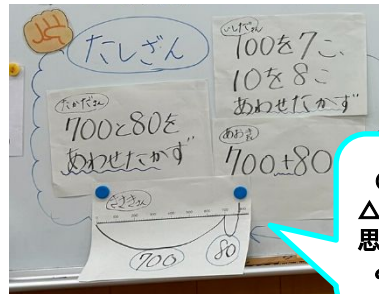 たしざん
いしださん
100を7こ、
10を8こ
あわせたかず
たかださん
700と80を
あわせたかず
あおきさん
700+80
ささきさん
700
80
△
思